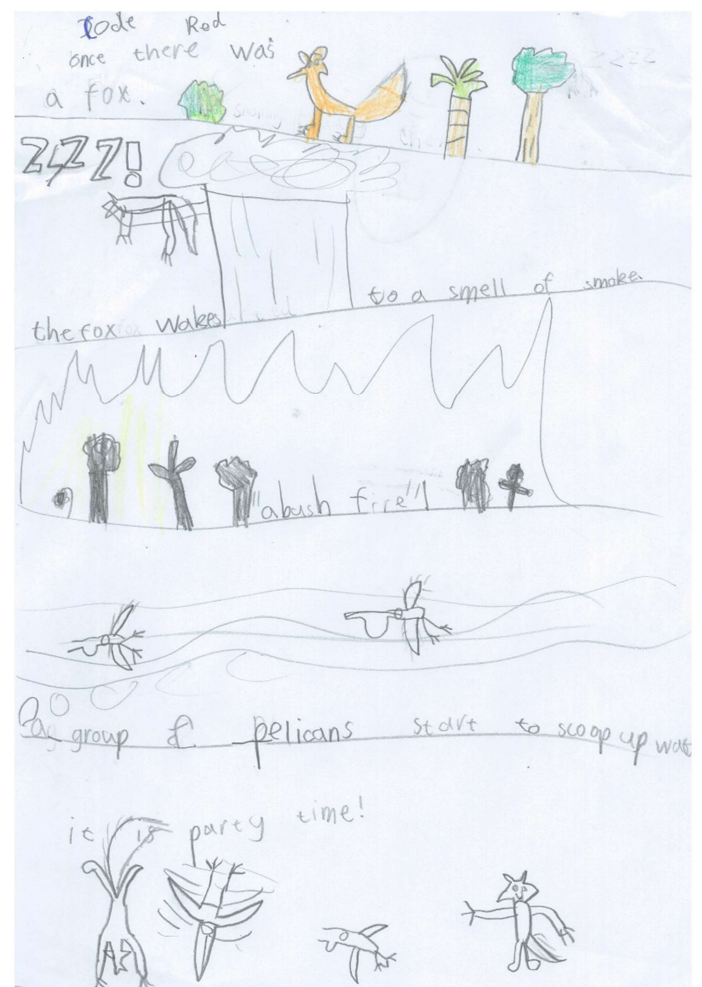 Code Red
once there was
a fox.
zzzz
ZZZZ!
the fox wakes to a smell of smoke.
"abush fire"!
a group of pelicans start to scoop up wat
it is party time!